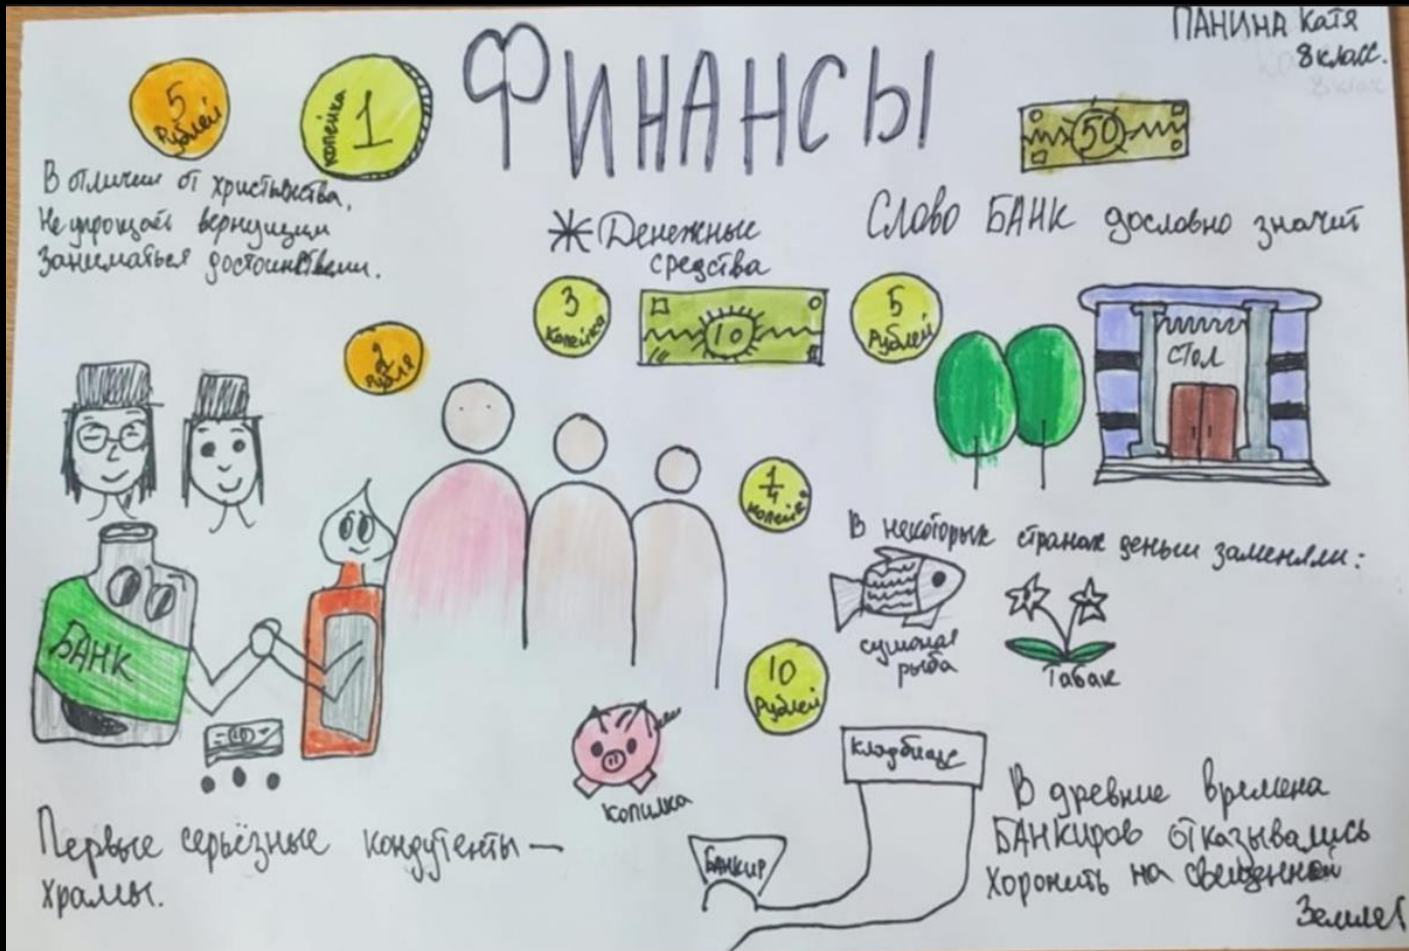 ПАНИНА Катя
8 класс.
ФИНАНСЫ
5
Рублей
1
копейка
50
В отличии от христьянства,
Не упрощает вернуищи
заниматься достоинствами.
Денежные
средства
Слово БАНК дословно значит
3
Копейка
10
5
Рублей
2
Рубля
стол
БАНК
1/4
копейк
10
В некоторых странах деньги заменяли:
сушоная
рыба
Табак
10
Рублей
копилка
Кладбище
Банкир
Первые серьёзные кондутенты —
храмы.
В древние времена
БАНКИРОВ отказывались
хоронить на свещенной
Земле!